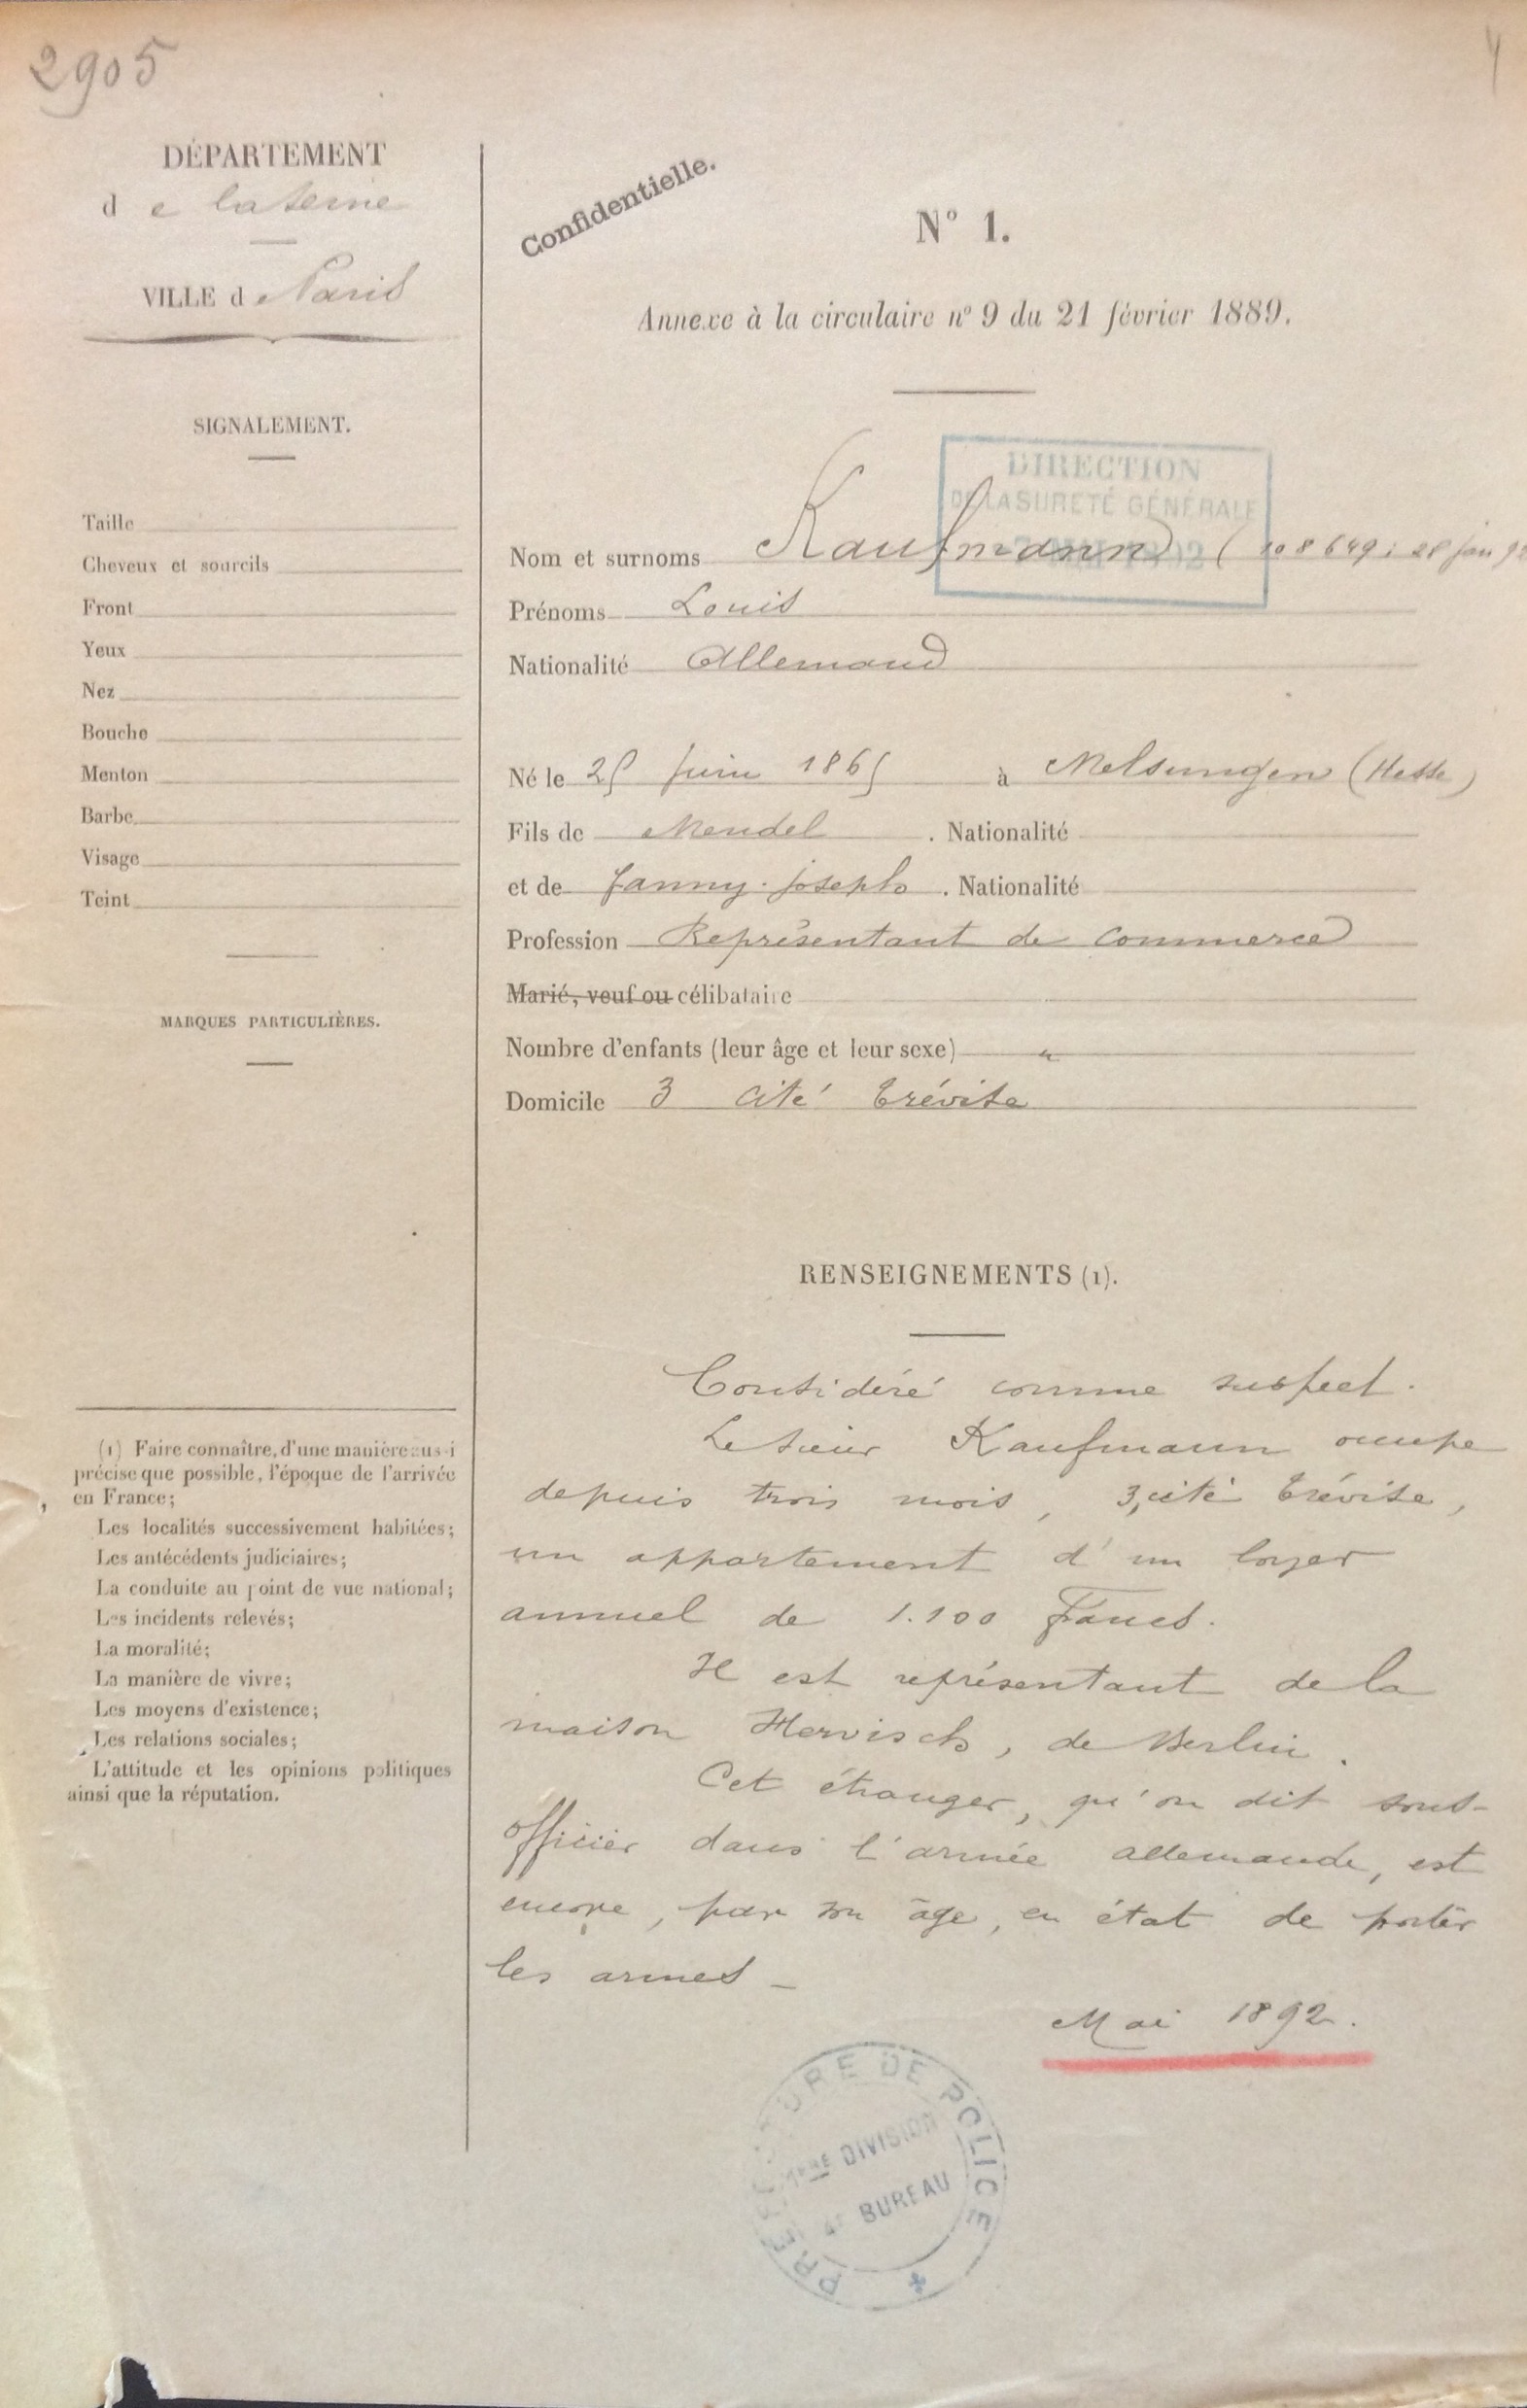 2905
DÉPARTEMENT
de la Seine
VILLE de Paris
SIGNALEMENT.
Taille
Cheveux et sourcils
Front
Yeux
Nez
Bouche
Menton
Barbe
Visage
Teint
MARQUES PARTICULIÈRES.
(1) Faire connaître, d'une manière aussi
précise que possible, l'époque de l'arrivée
en France;
Les localités successivement habitées;
Les antécédents judiciaires;
La conduite au point de vue national;
Les incidents relevés;
La moralité;
La manière de vivre;
Les moyens d'existence;
Les relations sociales;
L'attitude et les opinions politiques
ainsi que la réputation.
Confidentielle.
N° 1.
Annexe à la circulaire n° 9 du 21 février 1889.
DIRECTION
DE LA SURETÉ GÉNÉRALE
Nom et surnoms Kaufmann (108649; 28 jan 92
Prénoms Louis
Nationalité Allemand
Né le 25 juin 1865 à Melsungen (Hesse)
Fils de Mendel . Nationalité
et de Fanny. joseph . Nationalité
Profession Représentant de commerce
Marié, veuf ou célibataire
Nombre d'enfants (leur âge et leur sexe) "
Domicile 3 cité Trévise
RENSEIGNEMENTS (1).
Considéré comme suspect.
Le sieur Kaufmann occupe
depuis trois mois, 3, cité Trévise,
un appartement d'un loyer
annuel de 1.100 Francs.
Il est représentant de la
maison Hervisch, de Berlin.
Cet étranger, qu'on dit sous-
officier dans l'armée allemande, est
encore, par son âge, en état de porter
les armes -
Mai 1892.
PREFECTURE DE POLICE
1ERE DIVISION
4E BUREAU